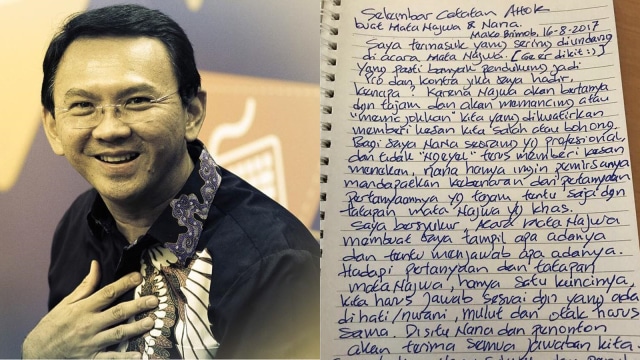 Selembar Catatan Ahok
buat Mata Najwa & Nana.
Mako Brimob, 16-8-2017
Saya termasuk yang sering diundang
di acara Mata Najwa. [Geer dikit :)]
Yang pasti banyak pendukung jadi
pro dan kontra jika saya hadir.
Kenapa? Karena Najwa akan bertanya
dgn tajam dan akan memancing atau
"memojokkan" kita yang dikuatirkan
memberi kesan kita salah atau bohong.
Bagi saya Nana seorang yg profesional,
dan tidak "Ngeyel" terus memberi kesan
menekan, Nana hanya ingin pemirsanya
mendapatkan kebenaran dari pertanyaan
pertanyaannya yg tajam tentu saja dgn
tatapan mata Najwa yg khas.
Saya bersyukur, acara Mata Najwa
membuat saya tampil apa adanya
dan tentu menjawab apa adanya.
Hadapi pertanyaan dan tatapan
mata Najwa, hanya satu kuncinya,
kita harus jawab sesuai dgn yang ada
di hati/nurani, mulut dan otak harus
sama. Disitu Nana dan penonton
akan terima semua jawaban kita.